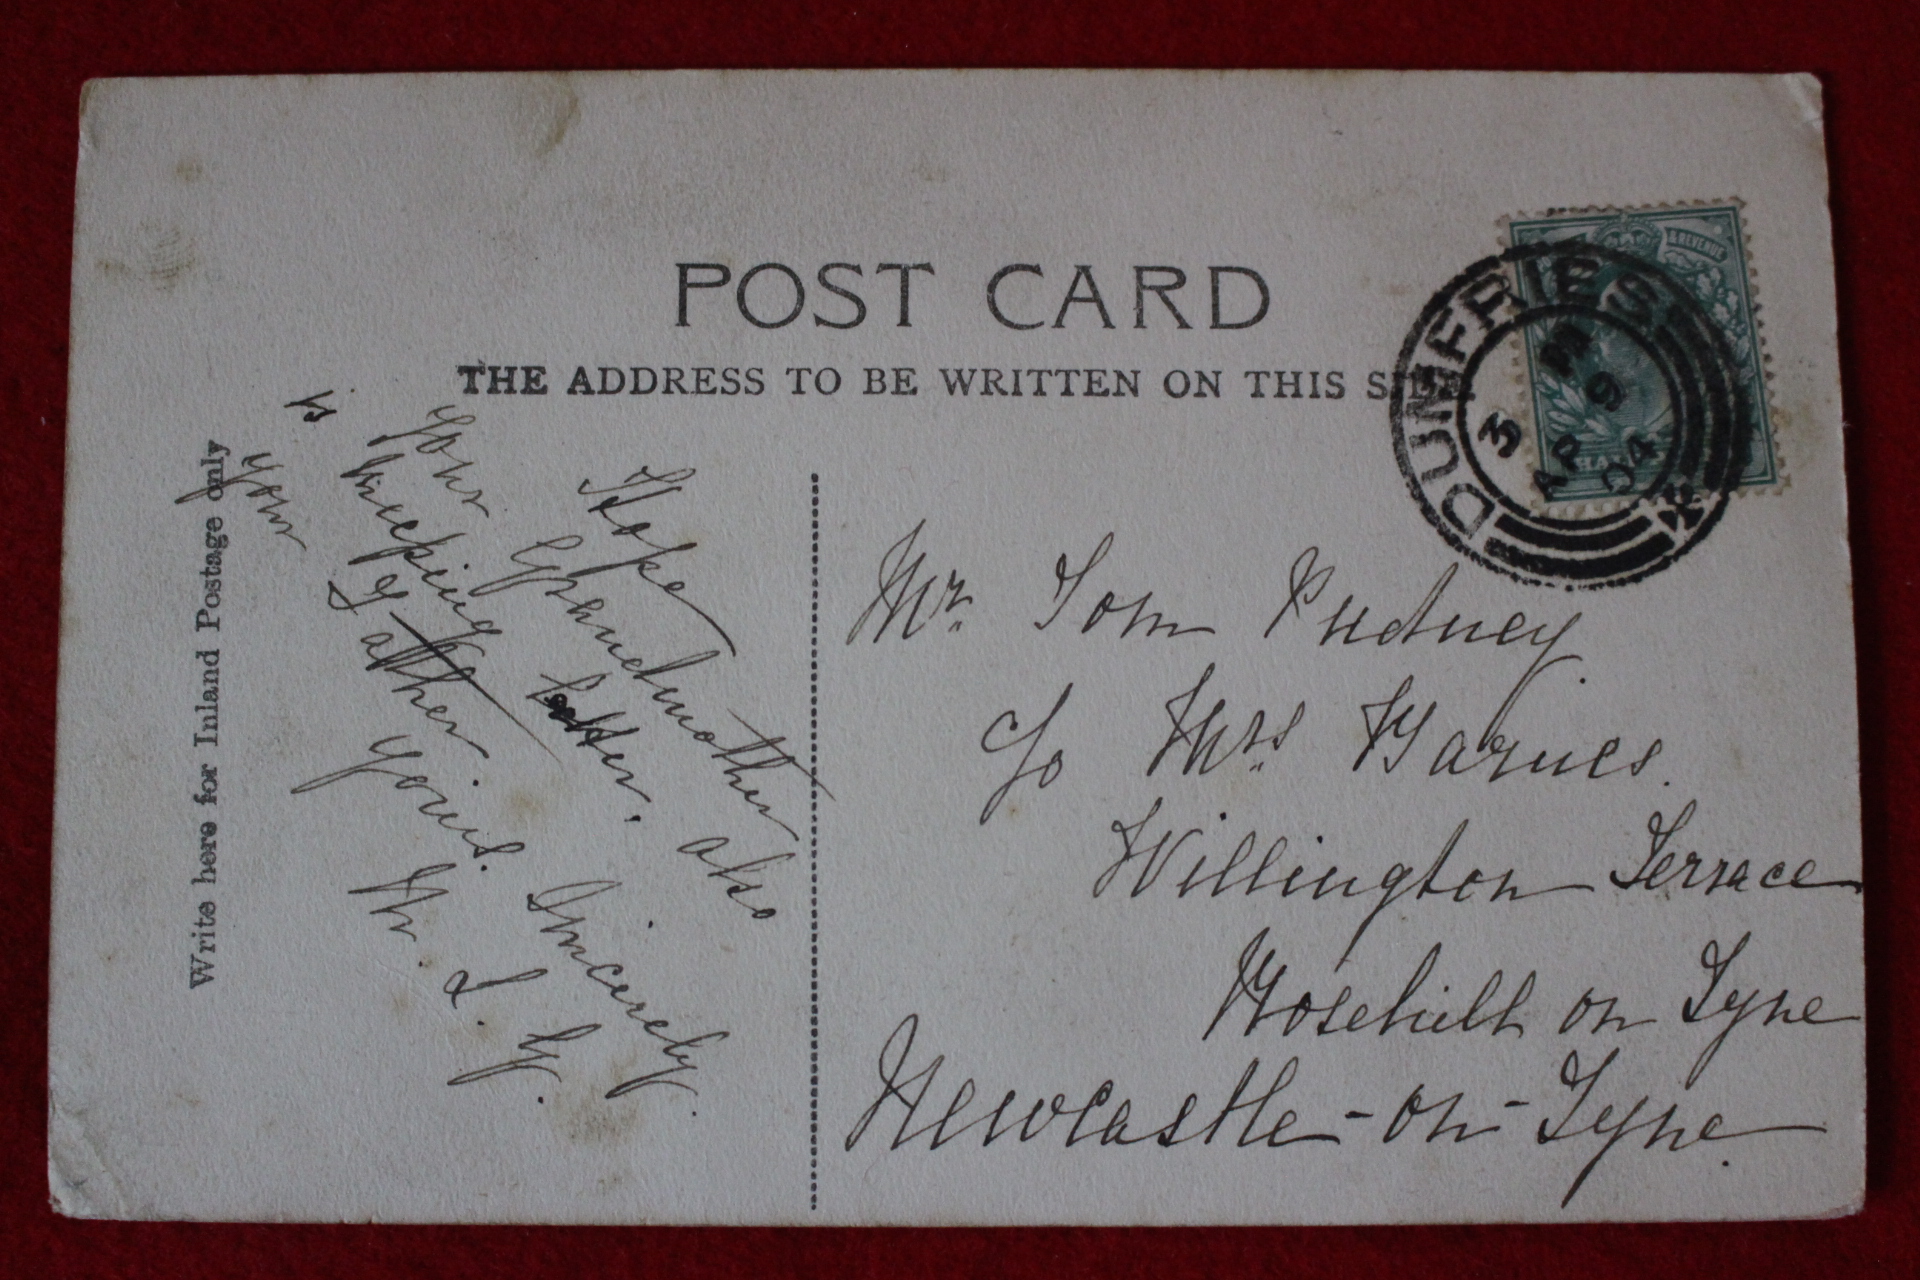 POST CARD
THE ADDRESS TO BE WRITTEN ON THIS SIDE
& REVENUE
DUMFRIES
PM
3 9
AP
04
Write here for Inland Postage only
Hope
your Grandmother
is keeping better. also
your Father
yours Sincerely.
W. J. G.
Mr. Tom Pudney
c/o Mrs. Barnes.
Willington Terrace
Rosehill on Tyne
Newcastle-on-Tyne.